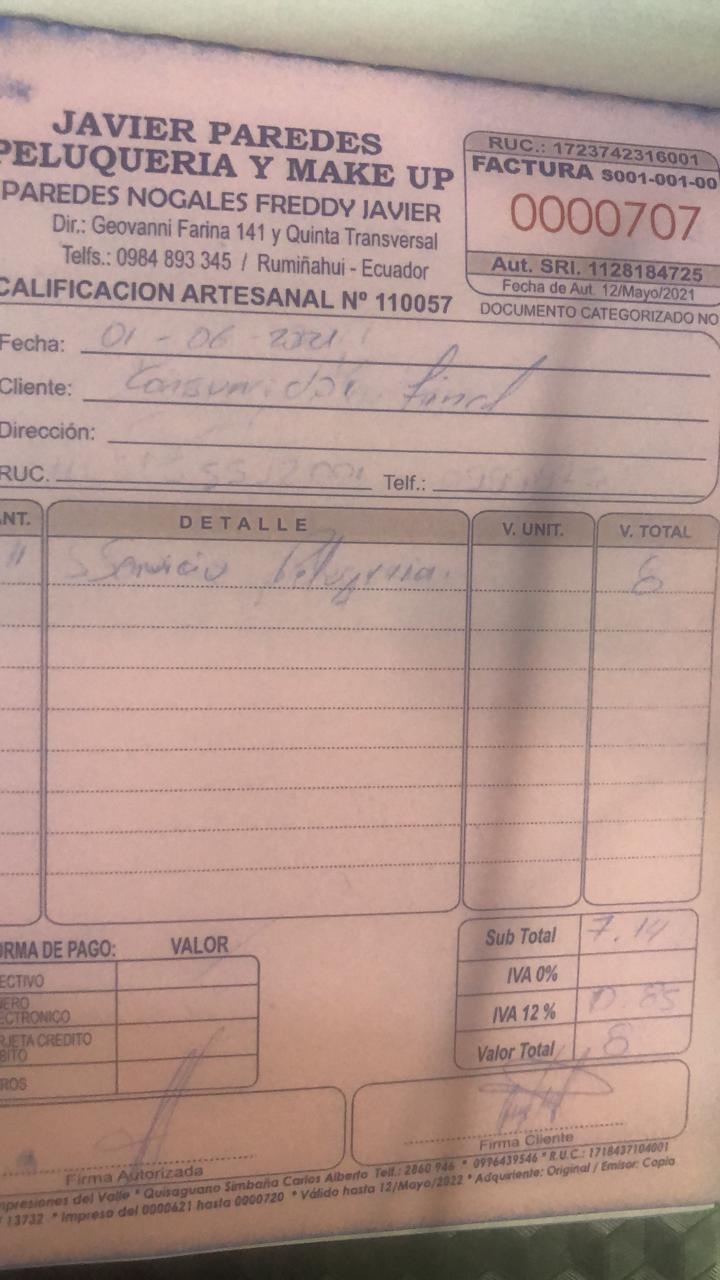 JAVIER PAREDES
PELUQUERIA Y MAKE UP
PAREDES NOGALES FREDDY JAVIER
Dir.: Geovanni Farina 141 y Quinta Transversal
Telfs.: 0984 893 345 / Rumiñahui - Ecuador
CALIFICACION ARTESANAL Nº 110057
RUC.: 1723742316001
FACTURA S001-001-00
0000707
Aut. SRI. 1128184725
Fecha de Aut. 12/Mayo/2021
DOCUMENTO CATEGORIZADO NO
Fecha: 01 - 06 - 2021
Cliente: Consumidor final
Dirección:
RUC. Telf.:
ANT. DETALLE V. UNIT. V. TOTAL
Servicio Peluqueria. 8
ORMA DE PAGO: VALOR
ECTIVO
NERO
ECTRONICO
RJETA CREDITO
BITO
ROS
Sub Total 7.14
IVA 0%
IVA 12 % 0.85
Valor Total 8
Firma Autorizada
Firma Cliente
mpresiones del Valle * Quisaguano Simbaña Carlos Alberto Telf.: 2860 946 * 0996439546 * R.U.C.: 1718437104001
13732 * Impreso del 0000621 hasta 0000720 * Válido hasta 12/Mayo/2022 * Adquiriente: Original / Emisor: Copia